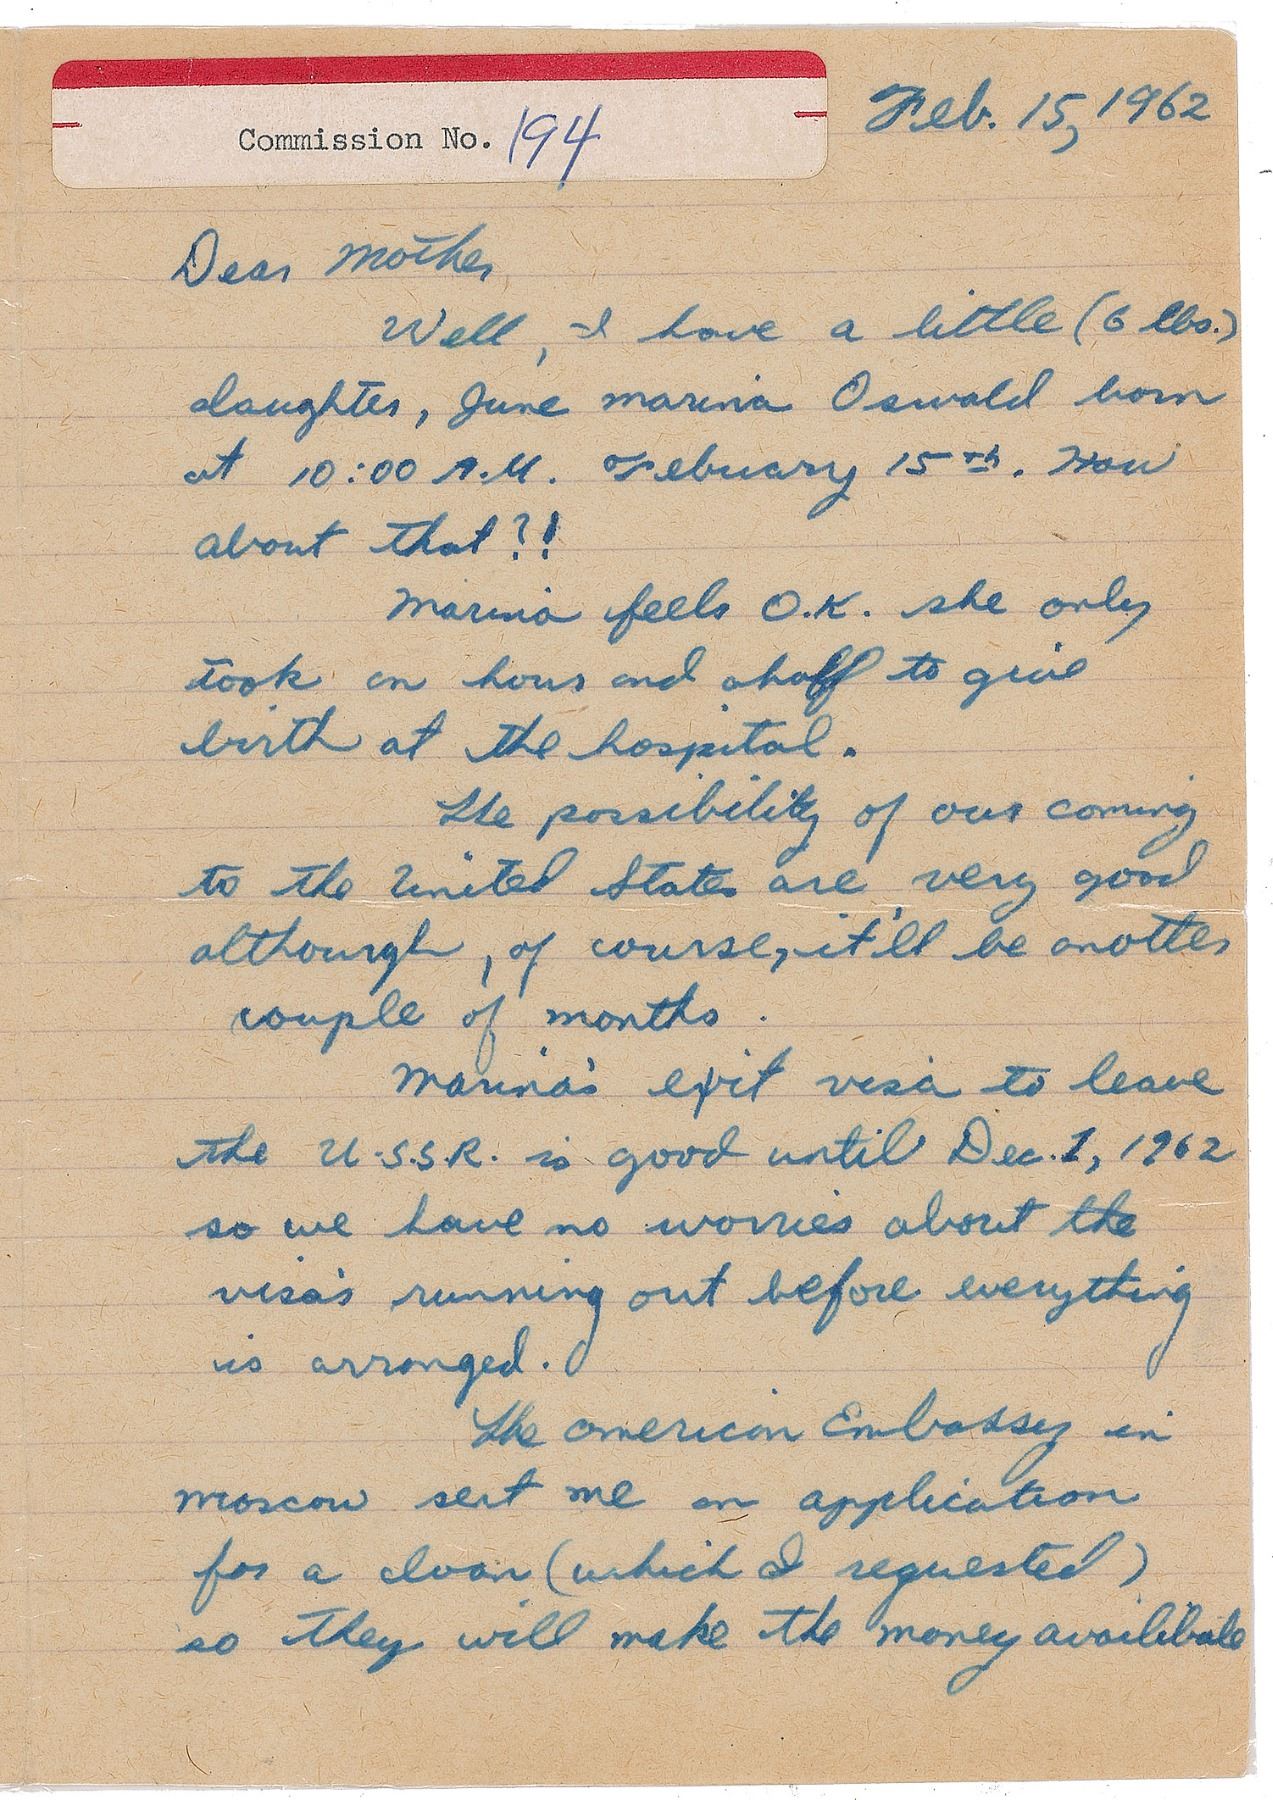 Commission No. 194
Feb. 15, 1962
Dear Mother,
Well, I have a little (6 lbs.)
daughter, June marina Oswald born
at 10:00 A.M. Febuary 15th. How
about that?!
Marina feels O.K. she only
took an hour and ahalf to give
birth at the hospital.
The possibility of our coming
to the United States are very good
althourgh, of course, it'll be anotter
couple of months.
Marina's exit visa to leave
the U.S.S.R. is good until Dec. 1, 1962
so we have no worries about the
visa's running out before everything
is arranged.
The american Embassy in
moscow sent me an application
for a loan (which I requested)
so they will make the money availibale